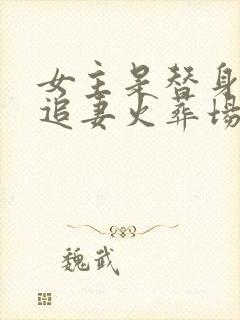 女主是替身
追妻火葬场
魏武